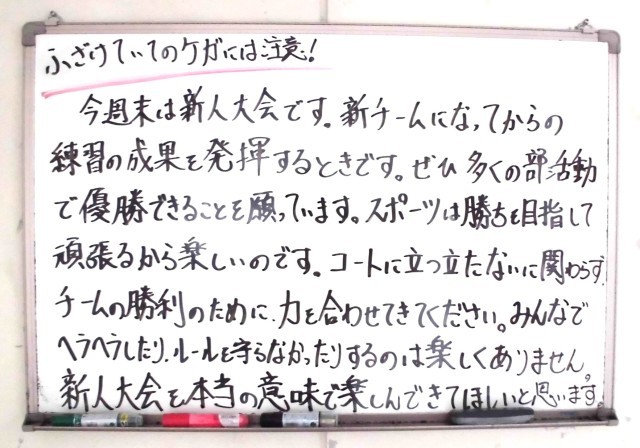 ふざけていてのケガには注意!
今週末は新人大会です。新チームになってからの
練習の成果を発揮するときです。ぜひ多くの部活動
で優勝できることを願っています。スポーツは勝ちを目指して
頑張るから楽しいのです。コートに立つ立たないに関わらず、
チームの勝利のために、力を合わせてきてください。みんなで
ヘラヘラしたり、ルールを守らなかったりするのは楽しくありません。
新人大会を本当の意味で楽しんできてほしいと思います。